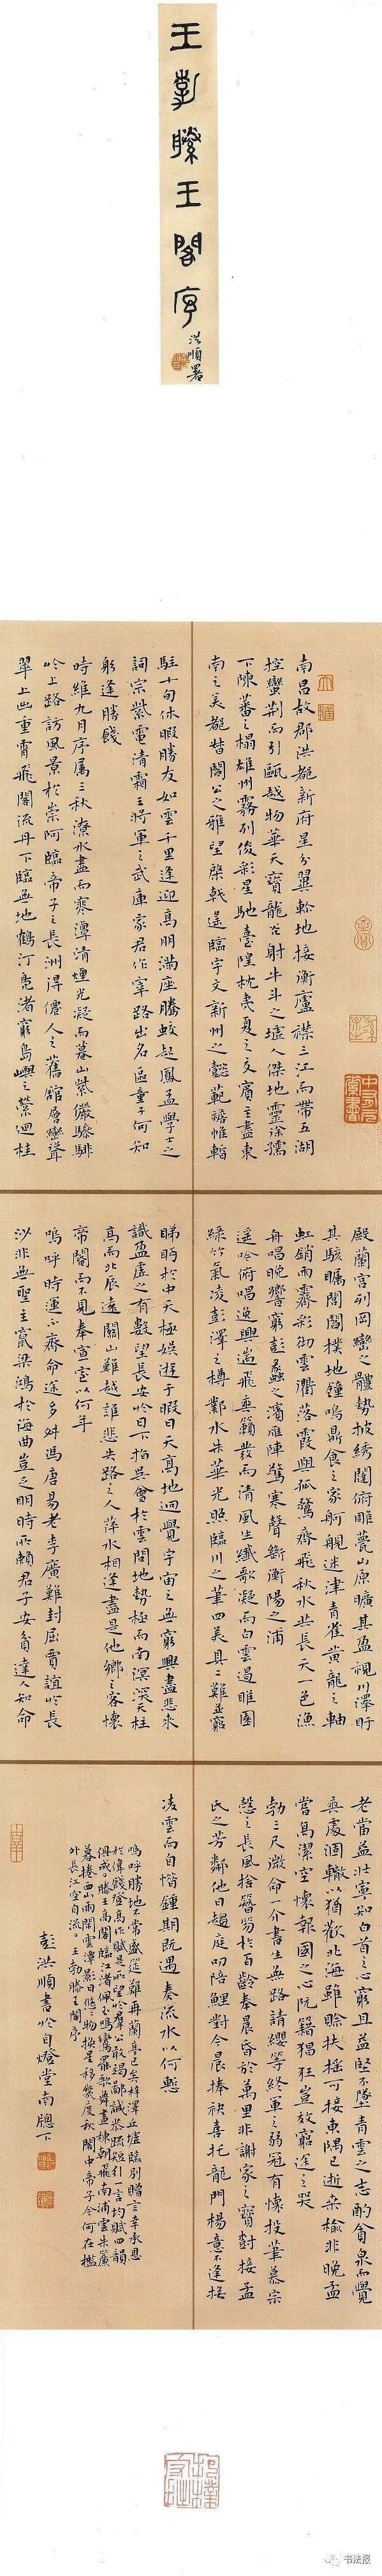 王勃滕王閣序
洪順署
南昌故郡洪都新府星分翼軫地接衡廬襟三江而帶五湖
控蠻荊而引甌越物華天寶龍光射牛斗之墟人傑地靈徐孺
下陳蕃之榻雄州霧列俊彩星馳臺隍枕夷夏之交賓主盡東
南之美都督閻公之雅望棨戟遙臨宇文新州之懿範襜帷暫
駐十旬休暇勝友如雲千里逢迎高朋滿座騰蛟起鳳孟學士之
詞宗紫電清霜王將軍之武庫家君作宰路出名區童子何知
躬逢勝餞
時維九月序屬三秋潦水盡而寒潭清煙光凝而暮山紫儼驂騑
於上路訪風景於崇阿臨帝子之長洲得僊人之舊館層巒聳
翠上出重霄飛閣流丹下臨無地鶴汀鳧渚窮島嶼之縈迴桂
殿蘭宮列岡巒之體勢披綉闥俯雕甍山原曠其盈視川澤盱
其駭矚閭閻撲地鐘鳴鼎食之家舸艦迷津青雀黃龍之軸
虹銷雨霽彩徹雲衢落霞與孤鶩齊飛秋水共長天一色漁
舟唱晚響窮彭蠡之濱雁陣驚寒聲斷衡陽之浦
遙吟俯唱逸興遄飛爽籟發而清風生纖歌凝而白雲遏睢園
綠竹氣凌彭澤之樽鄴水朱華光照臨川之筆四美具二難並窮
睇眄於中天極娛遊于暇日天高地迥覺宇宙之無窮興盡悲來
識盈虛之有數望長安於日下指吳會於雲間地勢極而南溟深天柱
高而北辰遠關山難越誰悲失路之人萍水相逢盡是他鄉之客懷
帝閽而不見奉宣室以何年
嗚呼時運不齊命途多舛馮唐易老李廣難封屈賈誼於長
沙非無聖主竄梁鴻於海曲豈乏明時所賴君子安貧達人知命
老當益壯寧知白首之心窮且益堅不墜青雲之志酌貪泉而覺
爽處涸轍以猶歡北海雖賒扶搖可接東隅已逝桑榆非晚孟
嘗高潔空懷報國之心阮籍猖狂豈效窮途之哭
勃三尺微命一介書生無路請纓等終軍之弱冠有懷投筆慕宗
愨之長風捨簪笏於百齡奉晨昏於萬里非謝家之寶樹接孟
氏之芳鄰他日趨庭叨陪鯉對今晨捧袂喜托龍門楊意不逢撫
凌雲而自惜鍾期既遇奏流水以何慙
嗚呼勝地不常盛筵難再蘭亭已矣梓澤丘墟臨別贈言幸承恩
於偉餞登高作賦是所望於羣公敢竭鄙誠恭疏短引一言均賦四韻
俱成滕王高閣臨江渚佩玉鳴鸞罷歌舞畫棟朝飛南浦雲朱簾
暮捲西山雨閒雲潭影日悠悠物換星移幾度秋閣中帝子今何在檻
外長江空自流王勃滕王閣序
彭洪順書於自燈堂南牕下
书法报